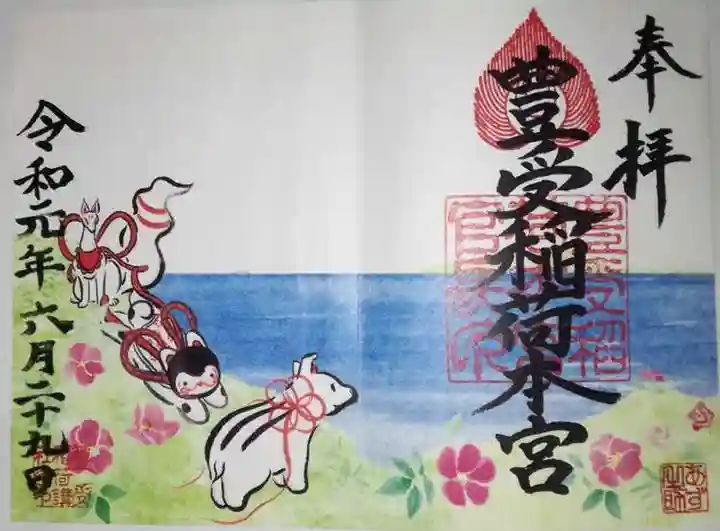 奉拝
豊受稲荷本宮
令和元年六月二十九日